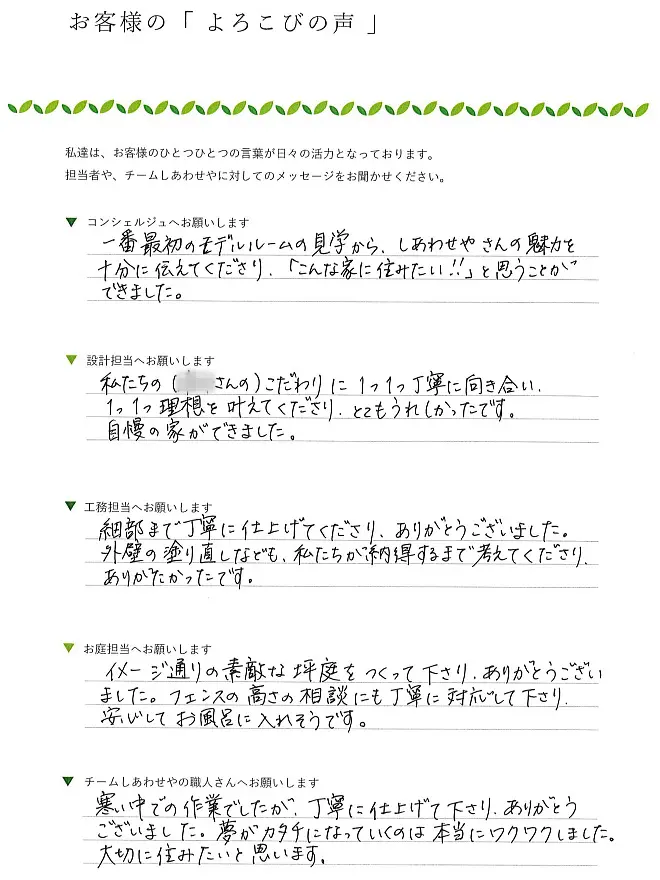 お客様の「よろこびの声」
私達は、お客様のひとつひとつの言葉が日々の活力となっております。
担当者や、チームしあわせやに対してのメッセージをお聞かせください。
▼ コンシェルジュへお願いします
一番最初のモデルルームの見学から、しあわせやさんの魅力を
十分に伝えてくださり、「こんな家に住みたい!!」と思うことが
できました。
▼ 設計担当へお願いします
私たちの(さんの)こだわりに1つ1つ丁寧に向き合い、
1つ1つ理想を叶えてくださり、とてもうれしかったです。
自慢の家ができました。
▼ 工務担当へお願いします
細部まで丁寧に仕上げてくださり、ありがとうございました。
外壁の塗り直しなども、私たちが納得するまで考えてくださり、
ありがたかったです。
▼ お庭担当へお願いします
イメージ通りの素敵な坪庭をつくって下さり、ありがとうござい
ました。フェンスの高さの相談にも丁寧に対応して下さり、
安心してお風呂に入れそうです。
▼ チームしあわせやの職人さんへお願いします
寒い中での作業でしたが、丁寧に仕上げて下さり、ありがとう
ございました。夢がカタチになっていくのは本当にワクワクしました。
大切に住みたいと思います。